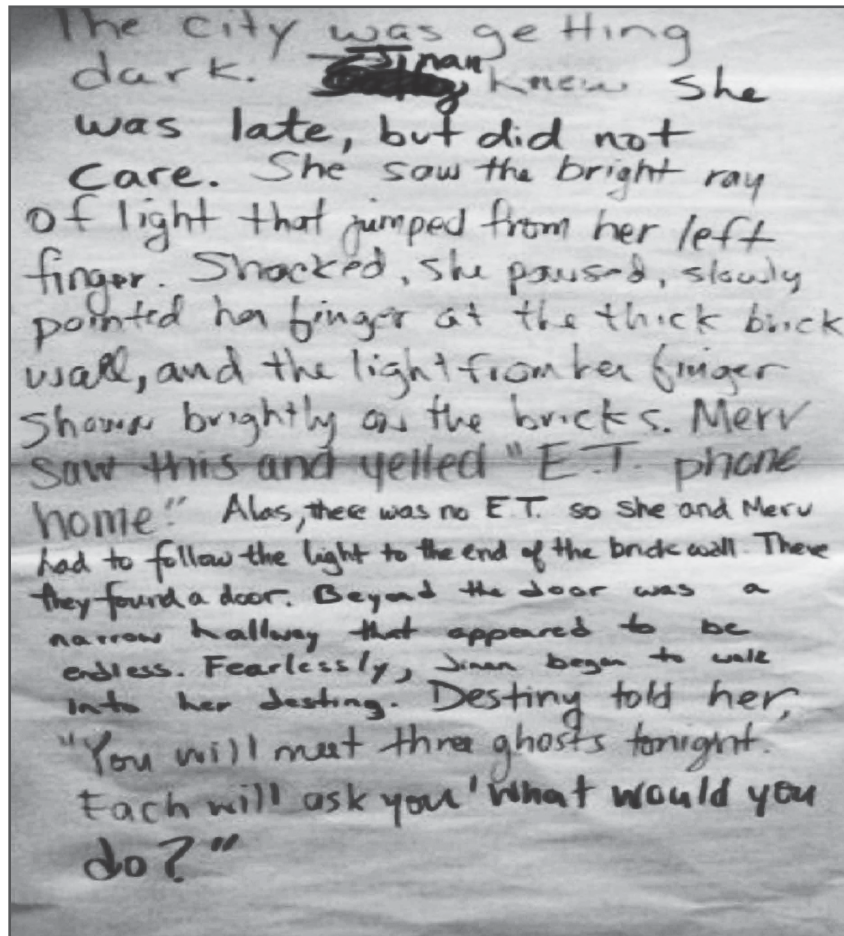 The city was getting
dark. Jinan knew she
was late, but did not
care. She saw the bright ray
of light that jumped from her left
finger. Shocked, she paused, slowly
pointed her finger at the thick brick
wall, and the light from her finger
shown brightly on the bricks. Merv
saw this and yelled "E.T. phone
home" Alas, there was no E.T. so she and Merv
had to follow the light to the end of the brick wall. There
they found a door. Beyond the door was a
narrow hallway that appeared to be
endless. Fearlessly, Jinan began to walk
into her destiny. Destiny told her,
"You will meet three ghosts tonight.
Each will ask you 'what would you
do?"